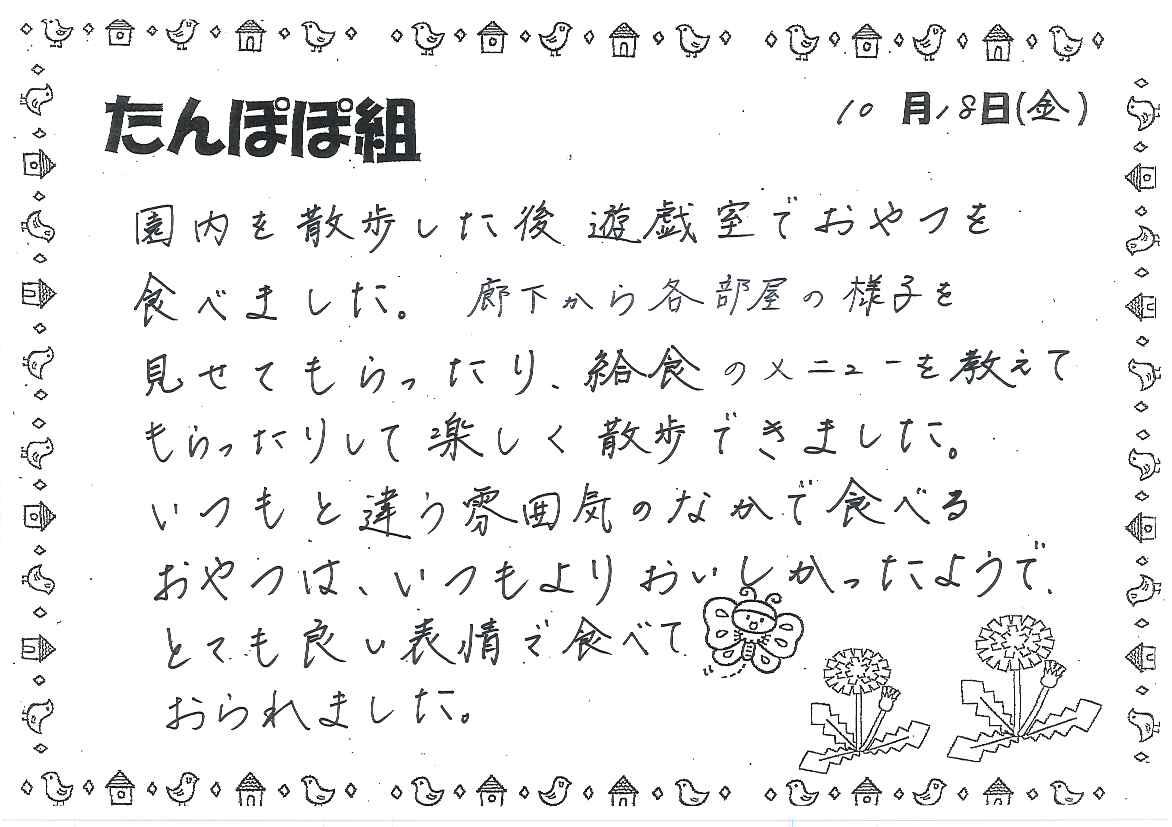 たんぽぽ組
10月18日(金)
園内を散歩した後遊戯室でおやつを
食べました。廊下から各部屋の様子を
見せてもらったり、給食のメニューを教えて
もらったりして楽しく散歩できました。
いつもと違う雰囲気のなかで食べる
おやつは、いつもよりおいしかったようで、
とても良い表情で食べて
おられました。